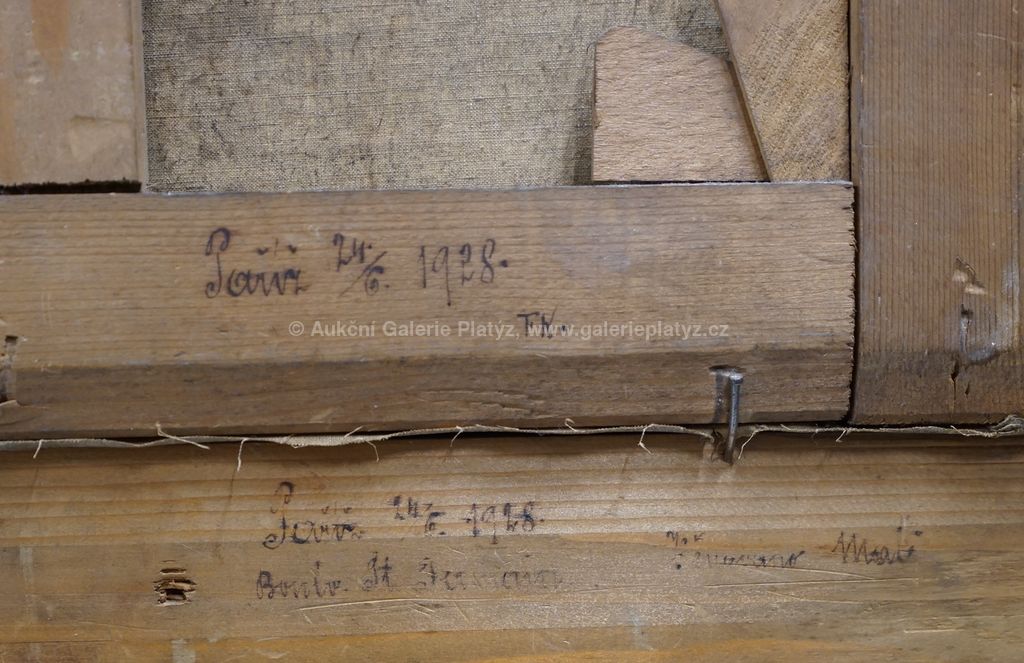 Paříž 24/6. 1928.
T.K.
© Aukční Galerie Platýz, www.galerieplatyz.cz
Paříž 24/6. 1928.
Boulv. St. Germain